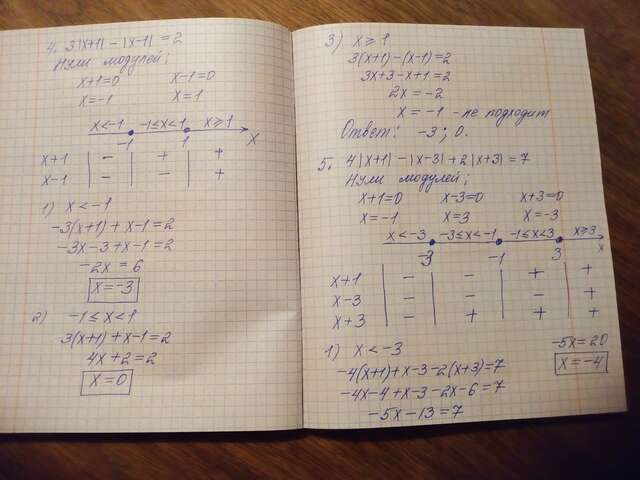 4. 3|x+1| - |x-1| = 2
Нули модулей:
x+1=0 x-1=0
x=-1 x=1
x<-1 -1≤x<1 x≥1
-1 1 x
x+1 | - | + | +
x-1 | - | - | +
1) x<-1
-3(x+1)+x-1=2
-3x-3+x-1=2
-2x=6
x=-3
2) -1≤x<1
3(x+1)+x-1=2
4x+2=2
x=0
3) x≥1
3(x+1)-(x-1)=2
3x+3-x+1=2
2x=-2
x=-1 - не подходит
Ответ: -3; 0.
5. 4|x+1|-|x-3|+2|x+3|=7
Нули модулей:
x+1=0 x-3=0 x+3=0
x=-1 x=3 x=-3
x<-3 -3≤x<-1 -1≤x<3 x≥3
-3 -1 3 x
x+1 | - | - | + | +
x-3 | - | - | - | +
x+3 | - | + | + | +
1) x<-3
-4(x+1)+x-3-2(x+3)=7
-4x-4+x-3-2x-6=7
-5x-13=7
-5x=20
x=-4